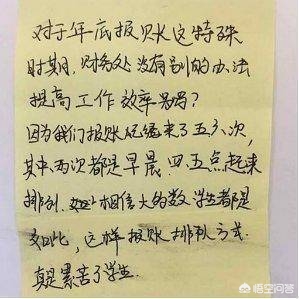 对于年底报账这特殊
时期，财务处没有别的办法
提高工作效率吗？
因为我们报账已经来了五六次，
其中两次都是早晨四五点起来
排列，相信大的数学生都是
如此，这样报账排队方式
真是累苦了学生.
悟空问答